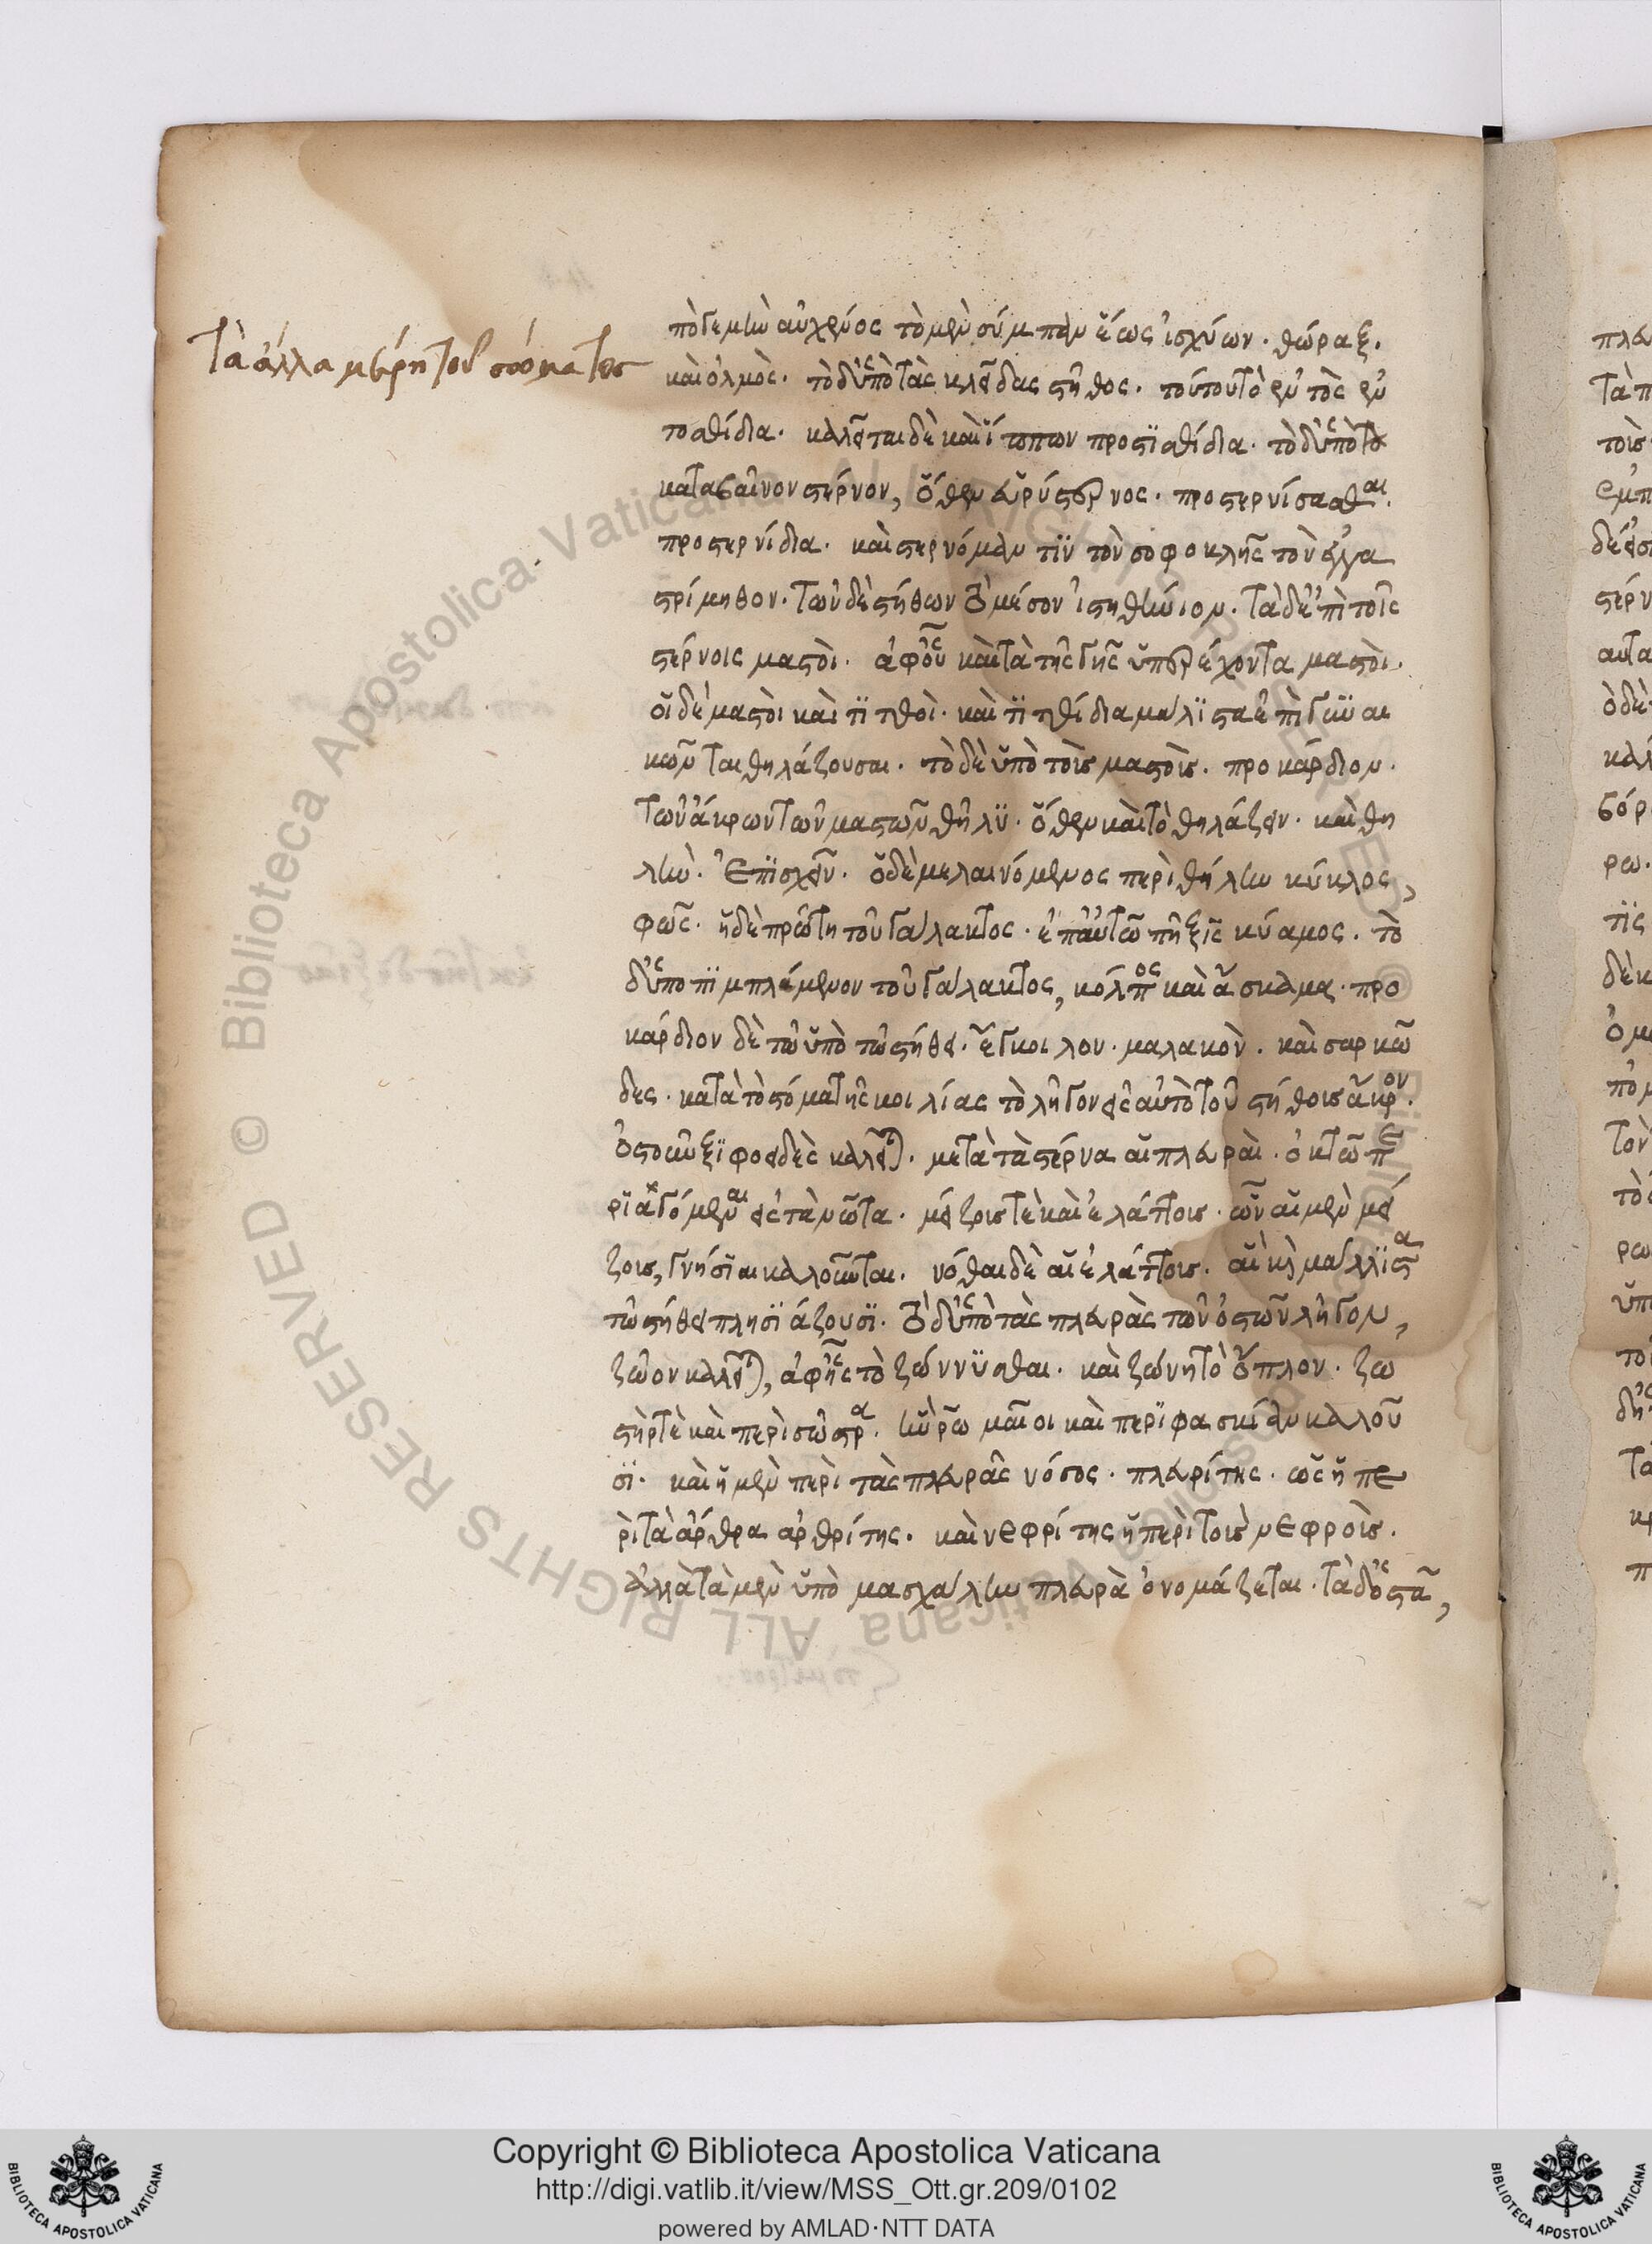 Τὰ ἄλλα μέρη τοῦ σώματος
πὸ γε μὴν αὐχένος τὸ μὲν σύμπαν ἕως ἰσχύων. θώραξ.
καὶ ὅλμος. τὸ δ' ὑπὸ τὰς κλεῖδας στῆθος. τούτου τὸ ἐντὸς ἐν
τοσθίδια. καλεῖται δὲ καὶ ἵππων προστισθίδια. τὸ δ' ὑπὸ τὸ
καταβαῖνον στέρνον, ὅθεν εὐρύστερνος. προστερνίσασθαι.
προστερνίδια. καὶ στερνόμαντιν τὸν σοφοκλῆς τὸν ἐγγα
στρίμηθον. τῶν δὲ στήθων τὸ μέσον ἱστηθύνιον. τὰ δ' ἐπὶ τοῖς
στέρνοις μαστοὶ. ἀφ' οὗ καὶ τὰ τῆς γῆς ὑπερέχοντα μαστοὶ.
οἱ δὲ μαστοὶ καὶ τιτθοὶ. καὶ τιτθίδια μάλιστα ἐπὶ γυναι
κῶν ταὶ θηλάζουσαι. τὸ δὲ ὑπὸ τοῖς μαστοῖς. προκάρδιον.
τῶν ἄκρων τῶν μαστῶν θῆλυ. ὅθεν καὶ τὸ θηλάζειν. καὶ θη
λὴν. ἐπισχεῖν. ὁ δὲ μελαινόμενος περὶ θήλην κύκλος,
φῶς. ἡ δὲ πρώτη τοῦ γάλακτος. ἐπ' αὐτῶ πῆξις κύαμος. τὸ
δ' ὑποπιμπλάμενον τοῦ γάλακτος, κόλπος καὶ ἄσκαμα. προ
κάρδιον δὲ τῶ ὑπὸ τῶ στήθει. ἔγκοιλον. μαλακὸν. καὶ σαρκῶ
δες. κατὰ τὸ στόμα τῆς κοιλίας τὸ λῆγον εἰς αὐτὸ τοῦ στήθους ἄκρον.
ὀστοῦν ξιφοειδὲς καλεῖται. μετὰ τὰ στέρνα αἱ πλευραὶ. ὀκτὼ πε
ριαγόμεναι εἰς τὰ νῶτα. μείζους τὲ καὶ ἐλάττους. ὧν αἱ μὲν μεί
ζους, γνήσιαι καλοῦνται. νόθαι δὲ αἱ ἐλάττους. αἳ καὶ μάλλιστα
τῶ στήθει πλησιάζουσι. τὸ δ' ὑπὸ τὰς πλευρὰς τῶν ὀστῶν λῆγον,
ζῶον καλεῖται, ἀφ' ἧς τὸ ζώννυσθαι. καὶ ζώνη τὸ ὅπλον. ζω
στὴρ τὲ καὶ περισώστρα. ἣν ῥωμαῖοι καὶ περιφασκίαν καλοῦ
σι. καὶ ἡ μὲν περὶ τὰς πλευρὰς νόσος. πλευρίτης. ὡς ἡ πε
ρὶ τὰ ἄρθρα ἀρθρίτης. καὶ νεφρίτης ἡ περὶ τοὺς νεφροὺς.
ἀλλὰ τὰ μὲν ὑπὸ μασχάλην πλευρὰ ὀνομάζεται. τὰ δ' ὀστᾶ,
Copyright © Biblioteca Apostolica Vaticana
http://digi.vatlib.it/view/MSS_Ott.gr.209/0102
powered by AMLAD·NTT DATA
BIBLIOTECA APOSTOLICA VATICANA
BIBLIOTECA APOSTOLICA VATICANA
© Biblioteca Apostolica Vaticana ALL RIGHTS RESERVED